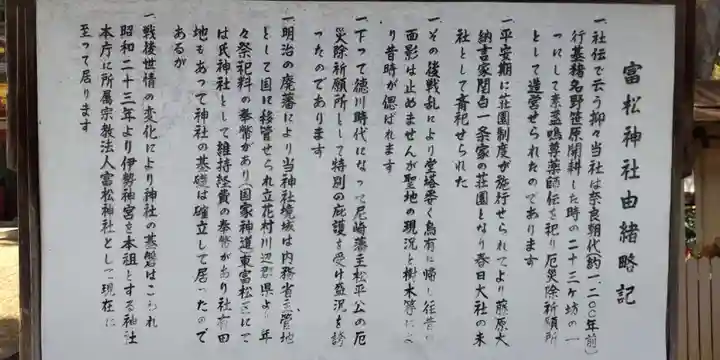 富松神社由緒略記
一、社伝で云う抑々当社は奈良朝代(約一、二〇〇年前)
行基猪名野笹原開耕した時の二十三ケ坊の一
つにして素盞嗚尊薬師伝を祀り厄災除祈願所
として造営せられたのであります
一、平安期に荘園制度が施行せられてより藤原大
納言家関白一条家の荘園となり春日大社の末
社として斉祀せられた
一、その後戦乱により堂塔悉く烏有に帰し往昔の
面影は止めませんが聖地の現況と樹木等により
昔時が偲ばれます
一、下って徳川時代になって尼崎藩主松平公の厄
災除祈願所として特別の庇護を受け盛況を誇
ったのであります
一、明治の廃藩により当神社境域は内務省管地
として国に移管せられ立花村川辺郡県より年
々祭祀料の奉幣があり(国家神道東富松にて
は氏神社として維持経費の奉幣があり社有田
地もあって神社の基礎は確立して居ったので
あるが
一、戦後世情の変化により神社の基盤はこわれ
昭和二十三年より伊勢神宮を本祖とする神社
本庁に所属宗教法人富松神社として現在に
至って居ります